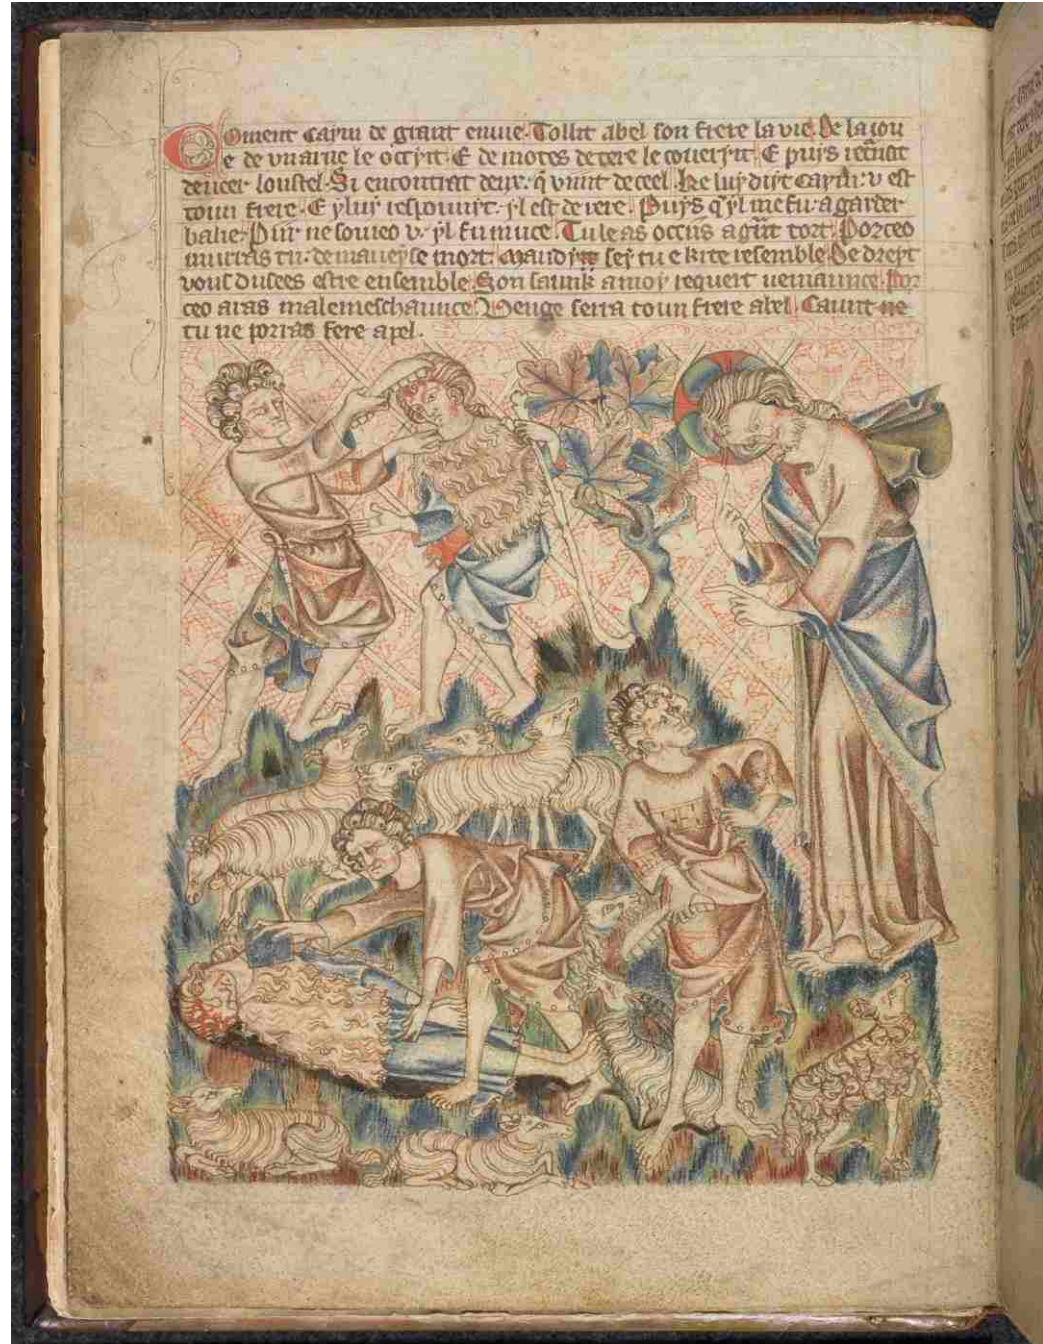 Coment Caym de graunt enuie. Tollit abel son frere la vie. De la iou
e de vn asne le occyst. E de motes de tere le couerSit. E puys
deueer loustel. Si encontrat deux. q̄ vint de ceel. Ke luy dyst Caym. v est
toun frere. E yluy respoundyt. yl est de vere. Puys q̄ yl me fu. a garder
balie. Pur ne soueo v. yl fu muce. Tu le as occus a g̃nt tort. Porceo
murras tu. de maueyse mort. Maudyt sey tu e k tere resemble. De dreyt
vous dusees estre ensemble. Son sank a moy requert veniaunce. Por
ceo aras male meschaunce. Venge serra toun frere abel. Caunt ne
tu ne porras fere apel.